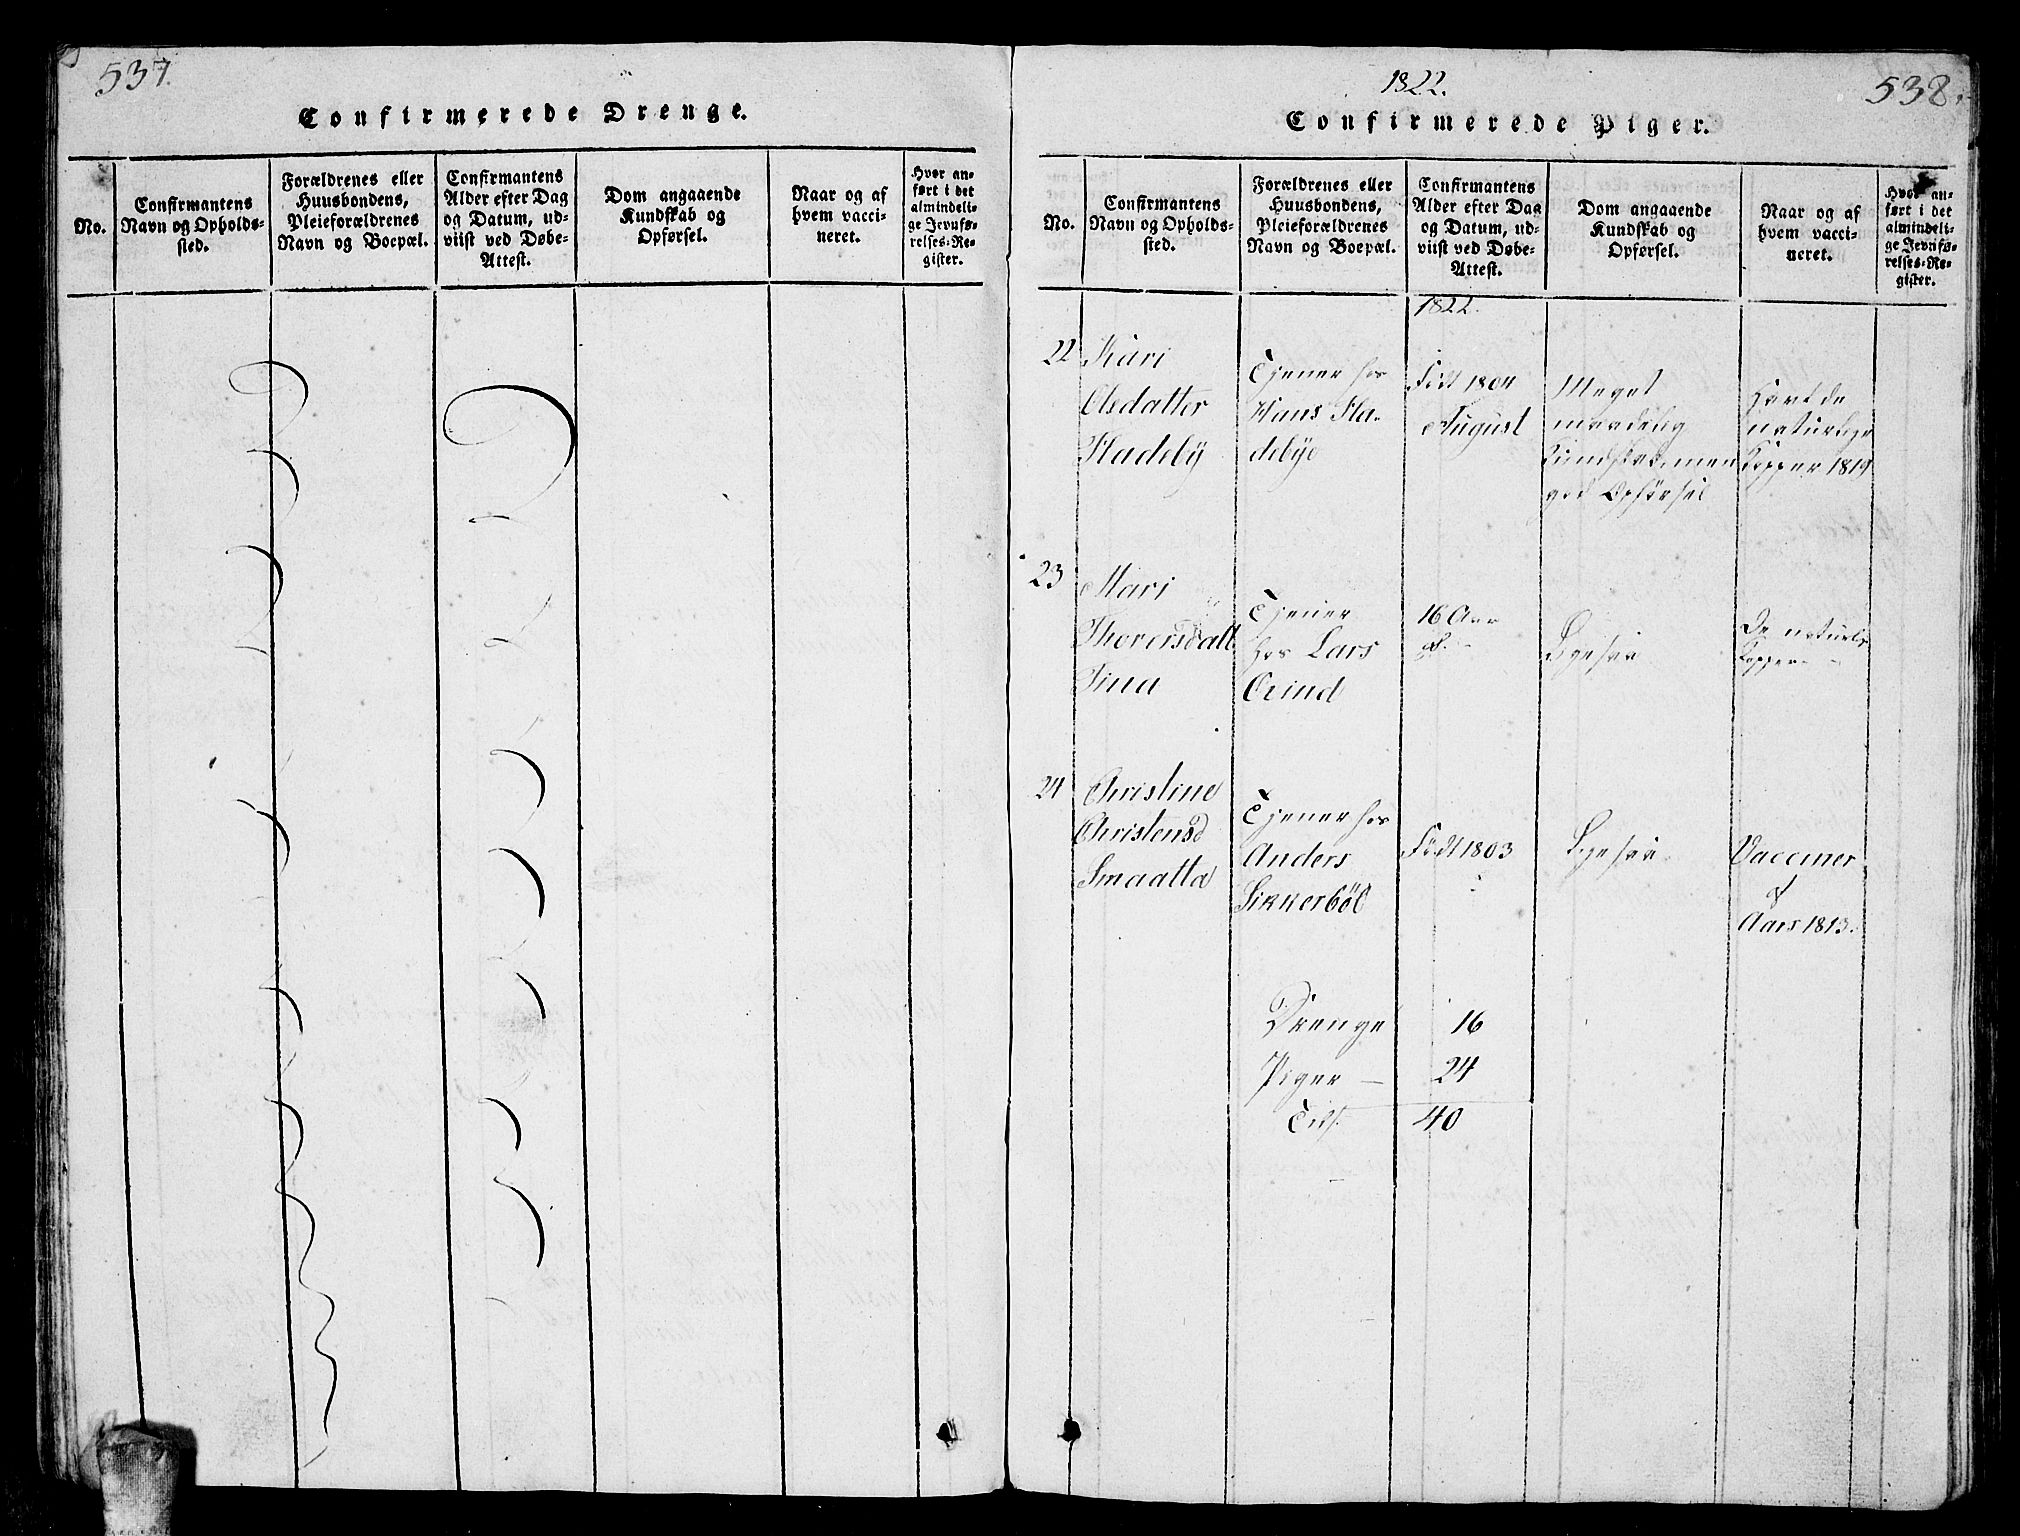 537.
Confirmerede Drenge.
No.
Confirmantens
Navn og Opholds-
sted.
Forældrenes eller
Huusbondens,
Pleieforældrenes
Navn og Boepæl.
Confirmantens
Alder efter Dag
og Datum, ud-
viist ved Døbe-
Attest.
Dom angaaende
Kundskab og
Opførsel.
Naar og af
hvem vacci-
neret.
Hvor an-
ført i det
almindeli-
ge Jevnfø-
relses-Re-
gister.
1822.
538.
Confirmerede Piger.
No.
Confirmantens
Navn og Opholds-
sted.
Forældrenes eller
Huusbondens,
Pleieforældrenes
Navn og Boepæl.
Confirmantens
Alder efter Dag
og Datum, ud-
viist ved Døbe-
Attest.
Dom angaaende
Kundskab og
Opførsel.
Naar og af
hvem vacci-
neret.
Hvor an-
ført i det
almindeli-
ge Jevnfø-
relses-Re-
gister.
1822.
22
Kari
Olsdatter
Fladeby
Tjener hos
Hans Fla-
debye
Född 1804
August
Meget
maadelig
Kundskab, men
god Opförsel
Havt de
naturlige
Kopper 1819
23
Mari
Thoversdatt.
Tina
Tjener
hos Lars
Qvind
16 Aar
gl.
Ligesaa
De naturlig
Kopper
24
Christine
Christensd
Smaatta
Tjener hos
Anders
Sikkerböl
Född 1803
Ligesaa.
Vacciner
af
Aars 1813.
Drenge 16
Piger — 24
Tils. 40